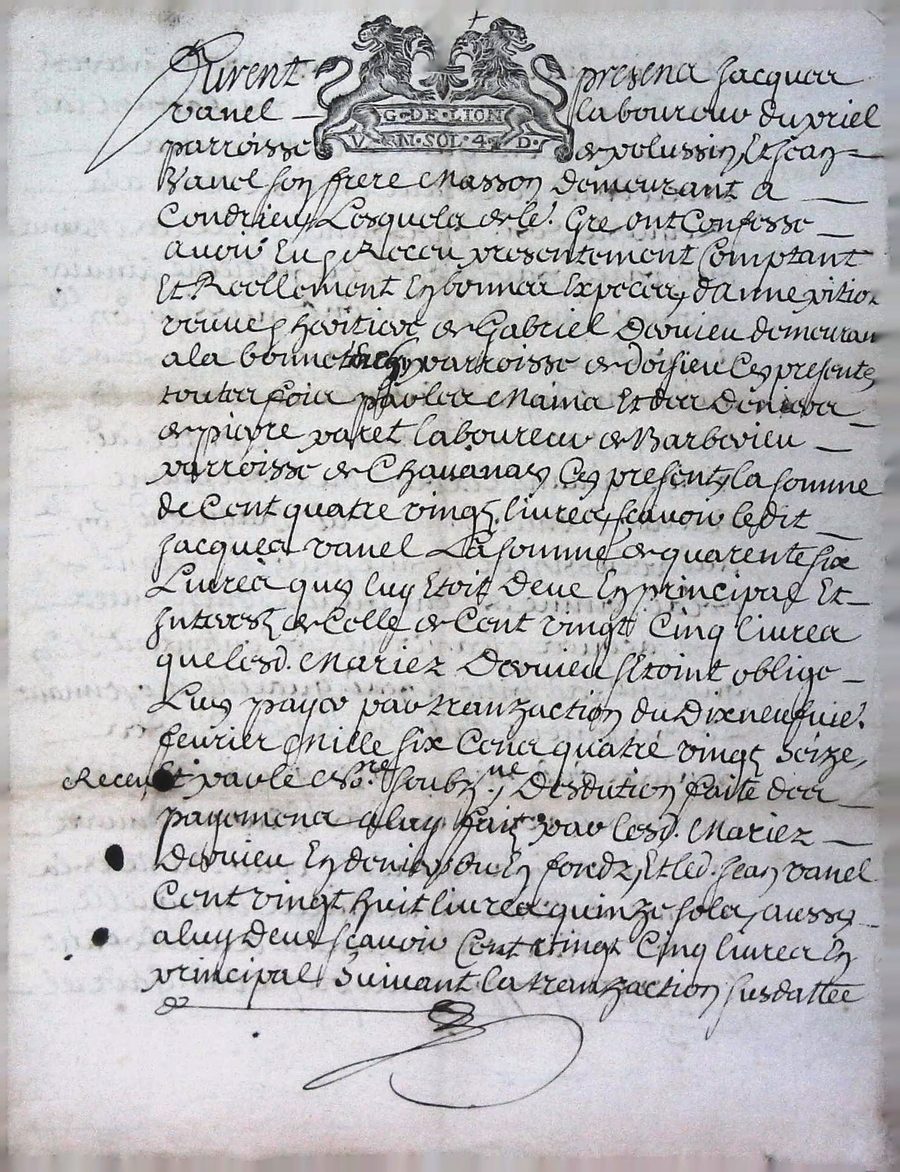 G·DE·LION
V·EN·SOL·4·D·
Furent presens Jacques
vanel laboureur du priel
parroisse de pelussin, Et Jean
Vanel son frere Masson demeurant a
Condrieu, Lesquels de le.r Gré ont Confessé
avoir Eu & Receu presentement Comptant
Et Reellement En bonnes Especes, d'anne pitio
veuve & heritiere de Gabriel Dervieu demeuran
a la bonne parroisse de doisieu Cy presente
toutes fois par les Mains Et des deniers
de pierre paret laboureur de Barbevieu
parroisse de Chavanay Cy present, la somme
de Cent quatre vingt livres, scavoir ledit
Jacques vanel La somme de quarente six
Livres quy luy Etoit deue En principal Et
Interest de Celle de Cent vingt Cinq livres
que lesd. Mariez Dervieu s'Etoint obligé
Luy payer par tranzaction du Dix neufvie.
fevrier Mille six Cens quatre vingt seize,
Receu Et par le no.re soubz.ne, Desdution faite des
payemens a luy fait par lesd. Mariez
Dervieu En deniers ou En fondz, Et led. Jean vanel
Cent vingt huit livres quinze sols, aussy
a luy Deue scavoir Cent vingt Cinq livres En
principal Suivant la tranzaction susdattée